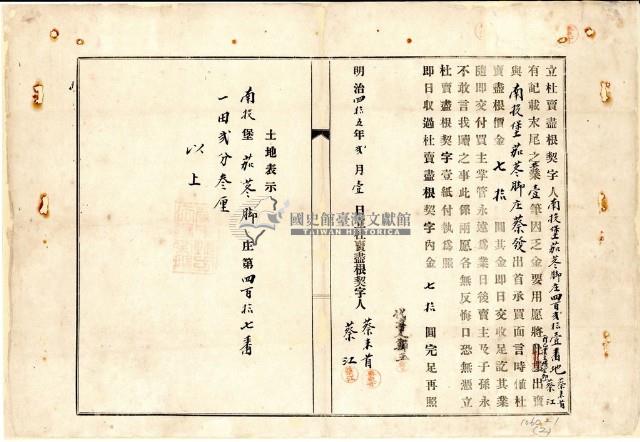 立杜賣盡根契字人南投堡茄苳脚庄四百貳拾壹番地蔡來首蔡江
有記載末尾之業壹筆因乏金要用愿將此業出賣
與南投堡茄苳脚庄蔡發出首承買面言時值杜
賣盡根價金七拾圓其金即日交收足訖其業
隨即交付買主掌管永遠爲業日後賣主及子孫永
不敢言找贖之事此係兩愿各無反悔口恐無憑立
杜賣盡根契字壹紙付執爲照
即日收過杜賣盡根契字內金七拾圓完足再照
明治四拾五年貳月壹日立杜賣盡根契字人蔡來首
蔡江
土地表示
南投堡茄苳脚庄第四百拾七番
一田貳分叁厘
以上
國史館臺灣文獻館
TAIWAN HISTORICA
(2)